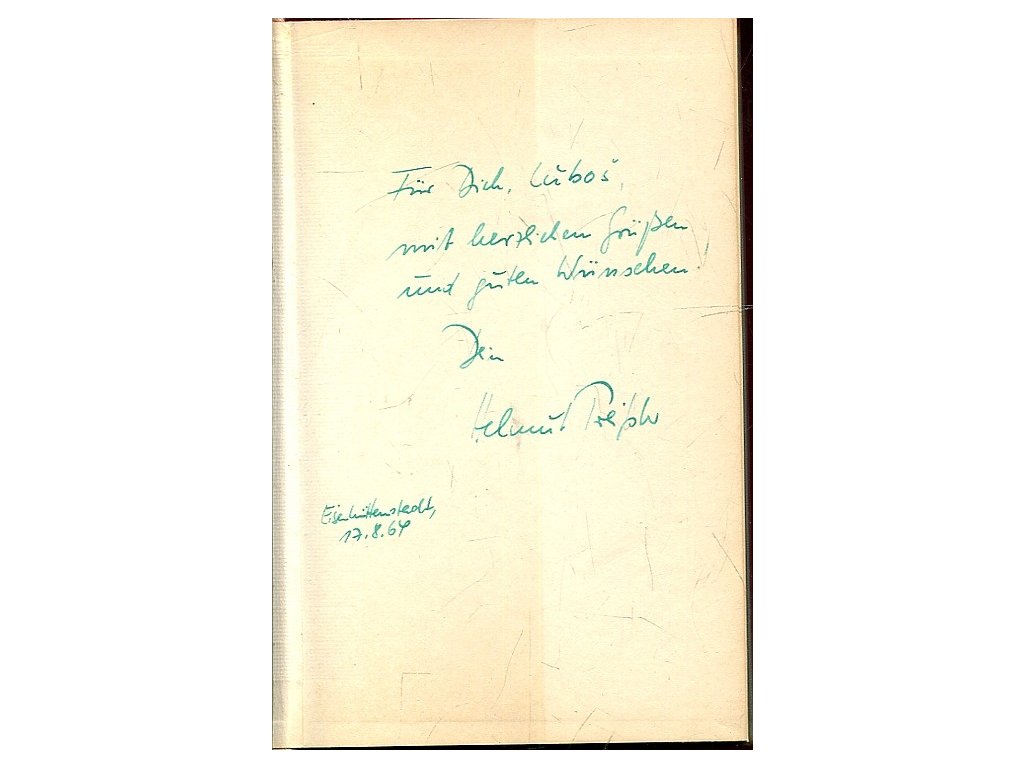 Für Dich, Luboš,
mit herzlichen Grüßen
und guten Wünschen.
Dein
Helmut Preißler
Eisenhüttenstadt,
17.8.64